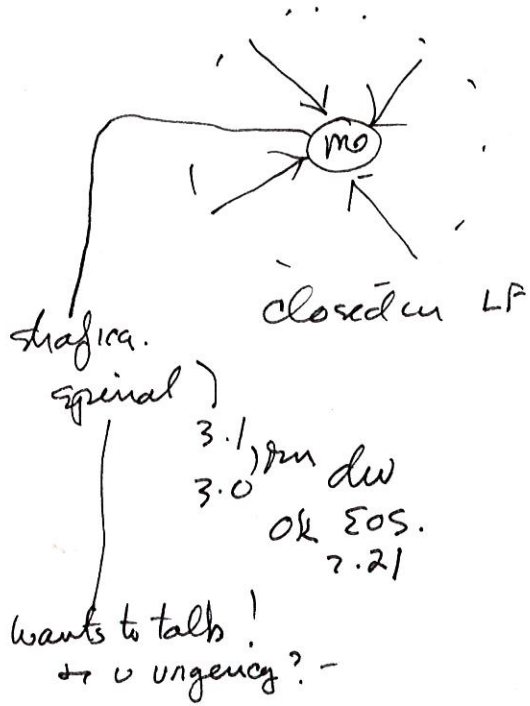 mo
closed in LF
shafica.
spinal )
3.1
3.0
ok EOS.
wants to talk!
urgency? -